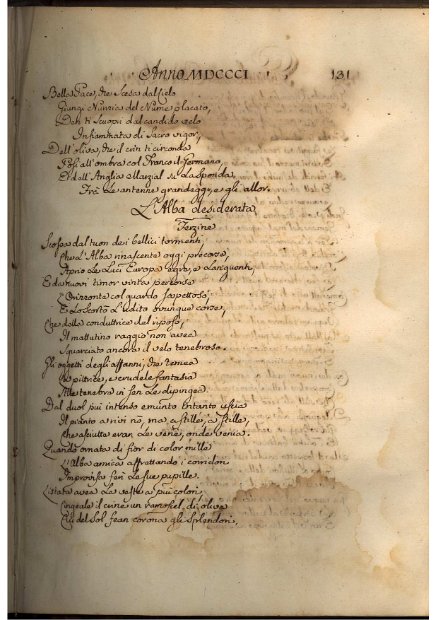 Anno MDCCCI 131
Bella Pace, che scesa dal Cielo
Giungi Nunzia del Nume placato,
Deh ti scuopri dal candido velo
Infiammata di Sacro vigor,
Dell'oliva, che il crin ti circonda
Posi all'ombra col Franco il Germano,
E dell'Anglia Marzial la sponda
Frà le antenne grandeggi, e gli allor.
L'Alba desiderata
Terzine
Scossa dal tuon dei bellici tormenti,
Che l'Alba rinascente oggi precorse,
Aprio le luci Europa egre, e languenti,
Ed a nuovi timor vinta percorse
L'Orizzonte col guardo sospettoso,
E ascoltò l'udito ovunque corse,
Che della conduttrice del riposo,
Il mattutino raggio non avea
Squarciato ancora il velo tenebroso.
Gli oggetti degli affanni, che temea
La pittrice, e crudele fantasia
Alle tenebre in sen le dipingea
Dal duol più intenso emunto intanto uscia
Il pianto a rivi nò, ma a stille, a stille,
Che asciutte eran le vene, onde venia.
Quando ornata di fior di color mille
L'Alba amica affrettando i corridori
Improvvisa ferì le sue pupille.
L'istata avea la veste a più colori,
Cingeale il crine un ramoscel di oliva
Cui del Sol fean corona gli Splendori,